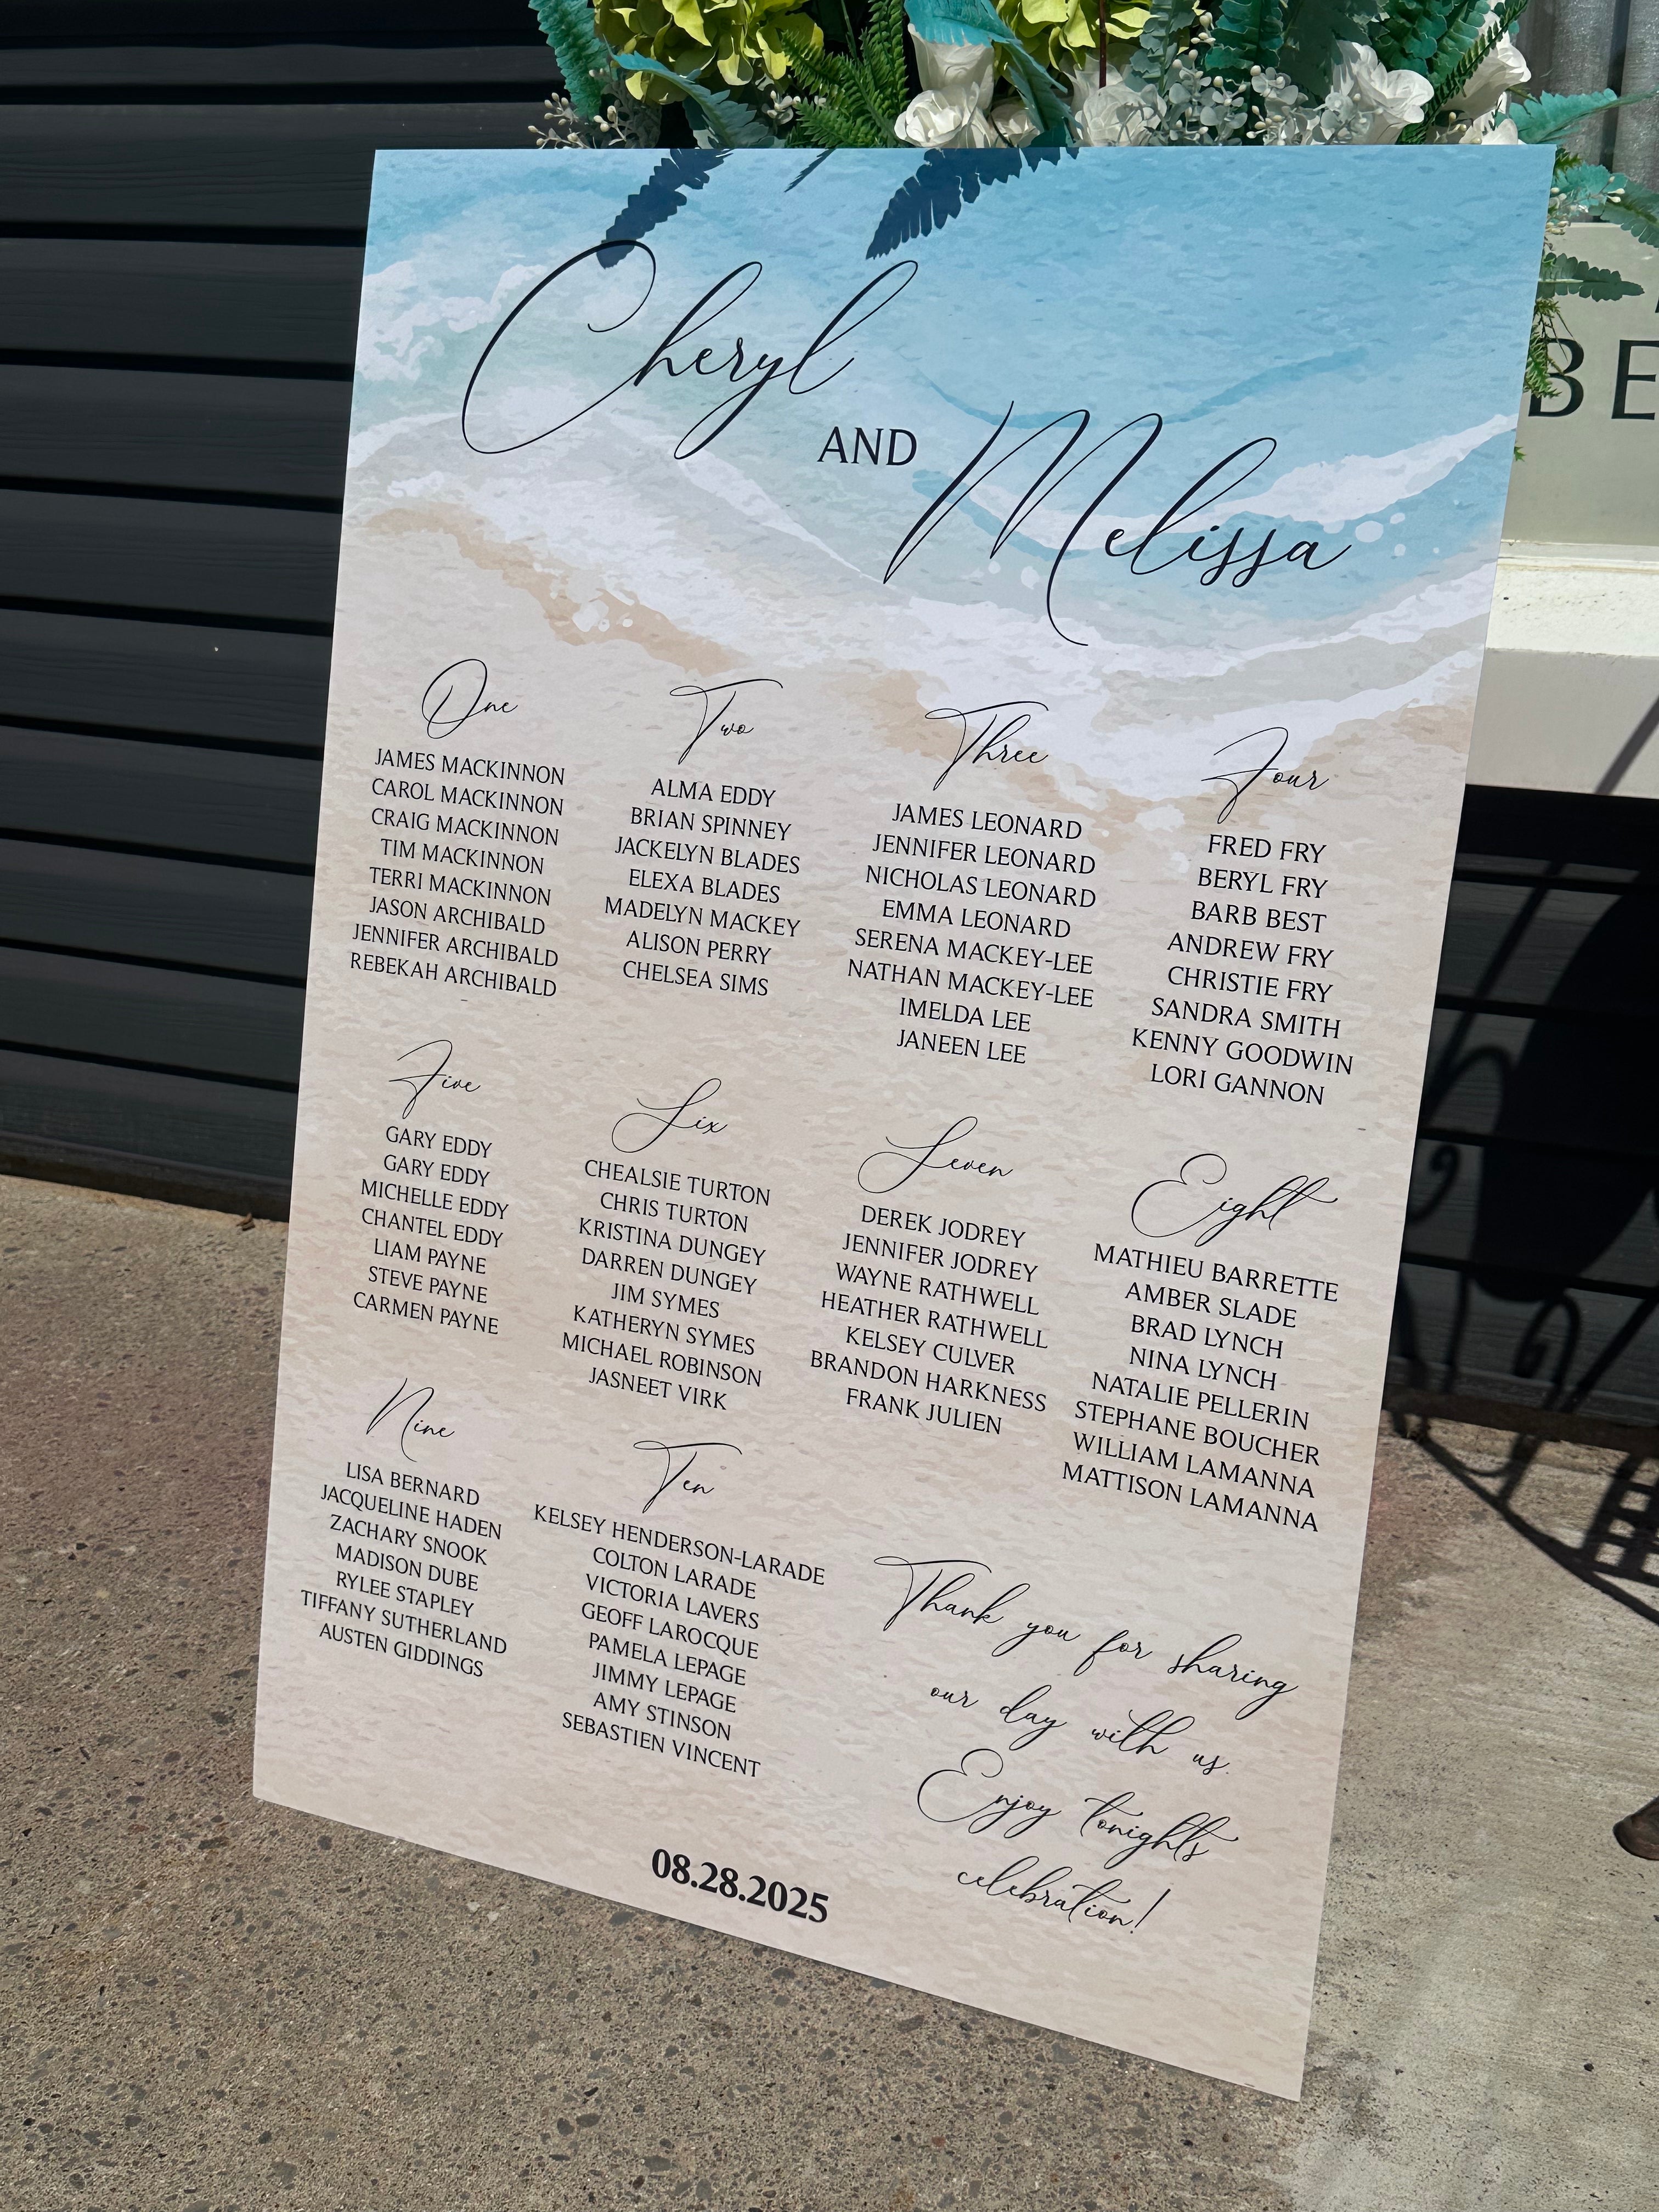 Cheryl
AND
Melissa
One
JAMES MACKINNON
CAROL MACKINNON
CRAIG MACKINNON
TIM MACKINNON
TERRI MACKINNON
JASON ARCHIBALD
JENNIFER ARCHIBALD
REBEKAH ARCHIBALD
Two
ALMA EDDY
BRIAN SPINNEY
JACKELYN BLADES
ELEXA BLADES
MADELYN MACKEY
ALISON PERRY
CHELSEA SIMS
Three
JAMES LEONARD
JENNIFER LEONARD
NICHOLAS LEONARD
EMMA LEONARD
SERENA MACKEY-LEE
NATHAN MACKEY-LEE
IMELDA LEE
JANEEN LEE
Four
FRED FRY
BERYL FRY
BARB BEST
ANDREW FRY
CHRISTIE FRY
SANDRA SMITH
KENNY GOODWIN
LORI GANNON
Five
GARY EDDY
GARY EDDY
MICHELLE EDDY
CHANTEL EDDY
LIAM PAYNE
STEVE PAYNE
CARMEN PAYNE
Six
CHEALSIE TURTON
CHRIS TURTON
KRISTINA DUNGEY
DARREN DUNGEY
JIM SYMES
KATHERYN SYMES
MICHAEL ROBINSON
JASNEET VIRK
Seven
DEREK JODREY
JENNIFER JODREY
WAYNE RATHWELL
HEATHER RATHWELL
KELSEY CULVER
BRANDON HARKNESS
FRANK JULIEN
Eight
MATHIEU BARRETTE
AMBER SLADE
BRAD LYNCH
NINA LYNCH
NATALIE PELLERIN
STEPHANE BOUCHER
WILLIAM LAMANNA
MATTISON LAMANNA
Nine
LISA BERNARD
JACQUELINE HADEN
ZACHARY SNOOK
MADISON DUBE
RYLEE STAPLEY
TIFFANY SUTHERLAND
AUSTEN GIDDINGS
Ten
KELSEY HENDERSON-LARADE
COLTON LARADE
VICTORIA LAVERS
GEOFF LAROCQUE
PAMELA LEPAGE
JIMMY LEPAGE
AMY STINSON
SEBASTIEN VINCENT
Thank you for sharing
our day with us.
Enjoy tonights
celebration!
08.28.2025
BE